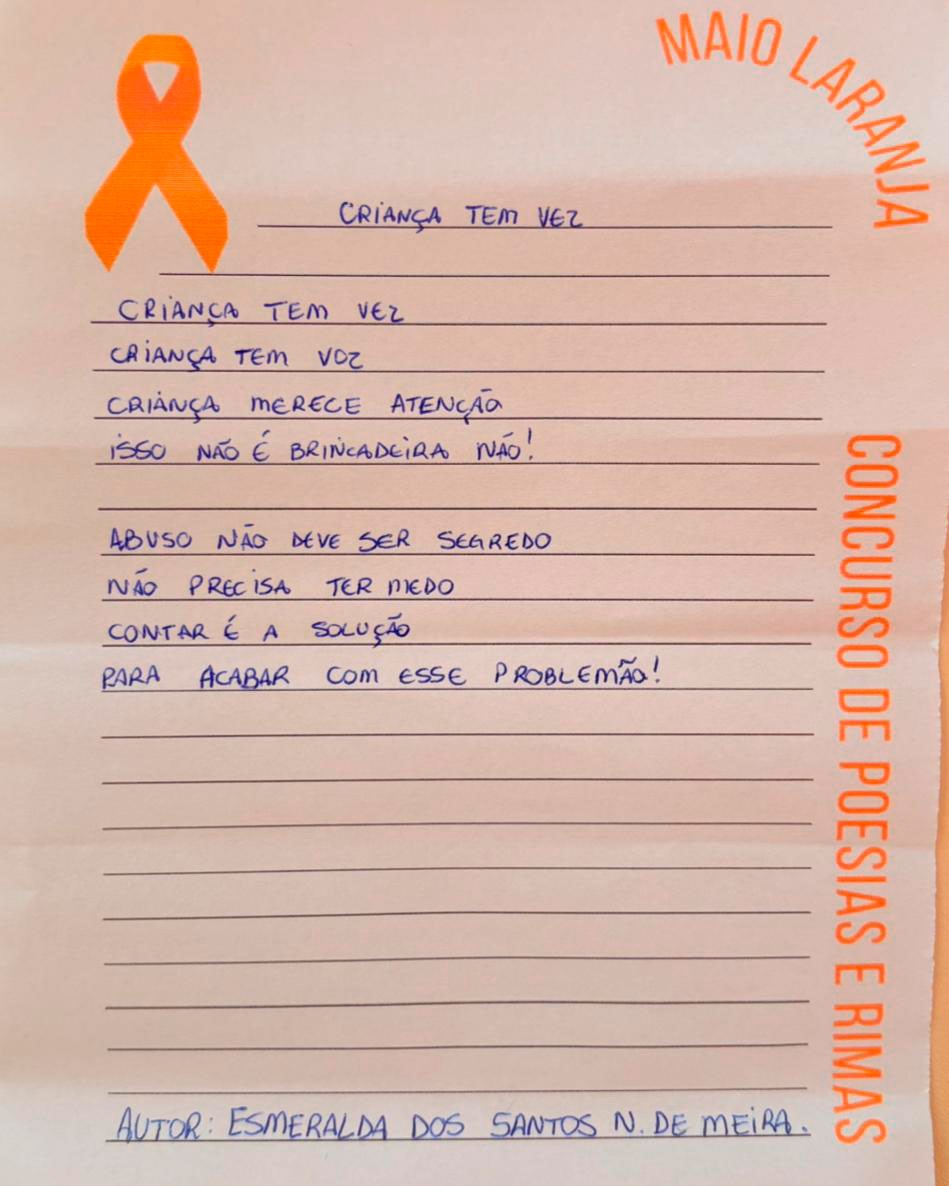 MAIO LARANJA
CRIANÇA TEM VEZ
CRIANÇA TEM VEZ
CRIANÇA TEM VOZ
CRIANÇA MERECE ATENÇÃO
ISSO NÃO É BRINCADEIRA NÃO!
ABUSO NÃO DEVE SER SEGREDO
NÃO PRECISA TER MEDO
CONTAR É A SOLUÇÃO
PARA ACABAR COM ESSE PROBLEMÃO!
AUTOR: ESMERALDA DOS SANTOS N. DE MEIRA.
CONCURSO DE POESIAS E RIMAS